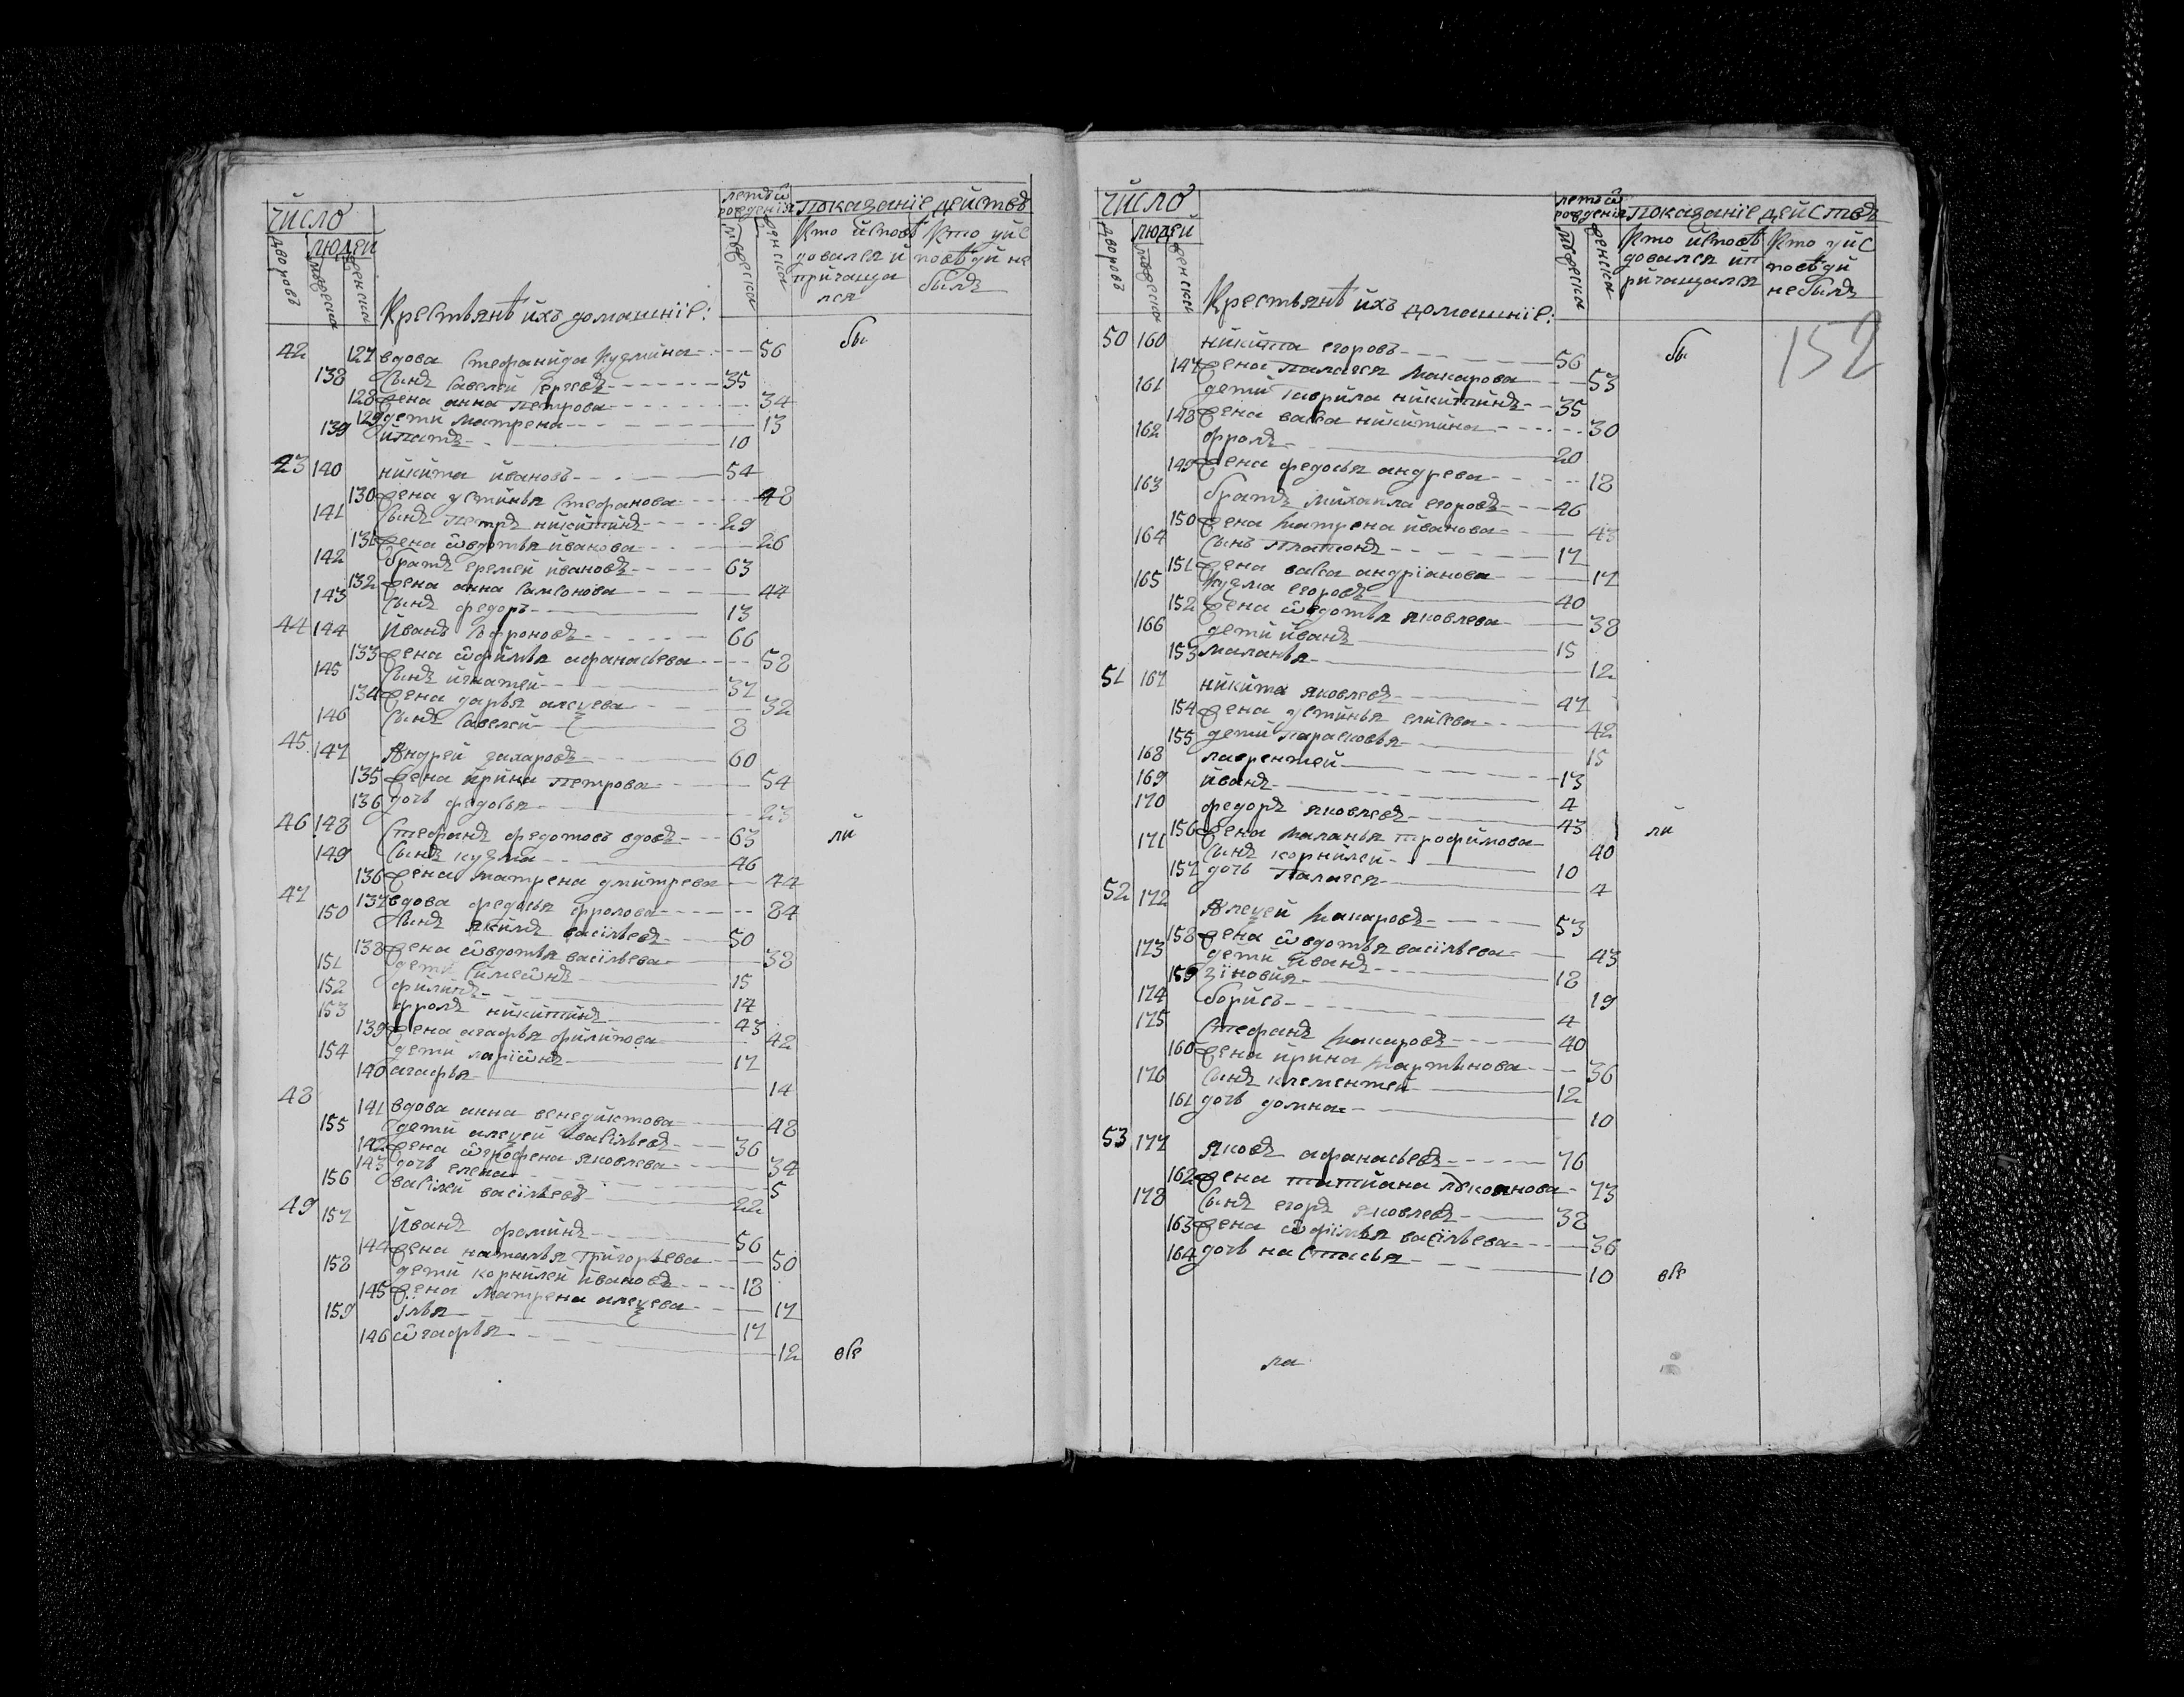 число
людей
дворовъ
мужеска
женска
Крестьянѣ ихъ домашніе:
летъ ѿ рожденія
мужеска
женска
показаніе действъ
Кто исповѣдовался и причащался
Кто у исповѣди не былъ
42 127 вдова Стефанида Кузмина 56 бы
138 Сынъ Савелей Сергѣевъ 35
128 жена анна петрова 34
129 дети Матрена 13
139 ипатъ 10
43 140 никита ивановъ 54
130 жена устинья Стефанова 48
141 Сынъ петръ никитинъ 29
131 жена ѿвдотья иванова 26
142 братъ еремей ивановъ 63
132 жена анна Самсонова 44
143 Сынъ федоръ 13
44 144 Иванъ Софроновъ 66
133 жена ѿфимья афанасьева 58
145 Сынъ игнатей 37
134 жена дарья алеѯева 32
146 Сынъ Савелей 8
45 147 Андрей захаровъ 60
135 жена ирина петрова 54
136 дочь федосья 23
46 148 Стефанъ федотовъ вдовъ 63 ли
149 Сынъ кузма 46
136 жена матрена дмитрева 44
47 137 вдова федосья фролова 84
150 Сынъ якимъ васильевъ 50
138 жена ѿвдотья васильева 38
151 дети Симеѡнъ 15
152 филипъ 14
153 фролъ никитинъ 43
139 жена агафья филипова 42
154 дети ларіѡнъ 17
140 агафья 14
48 141 вдова анна венедиктова 48
155 дети алеѯей васильевъ 36
142 жена ѿгрофена яковлева 34
143 дочь елена 5
156 василей васильевъ 22
49 157 Иванъ фоминъ 56
144 жена наталья григорьева 50
158 дети корнилей ивановъ 18
145 жена матрена алеѯева 17
159 илья 17
146 ѿгафья 12 вѣ
число
людей
дворовъ
мужеска
женска
Крестьянѣ ихъ домашніе:
летъ ѿ рожденія
мужеска
женска
показаніе действъ
Кто исповѣдовался и причащался
Кто у исповѣди не былъ
152
50 160 никита егоровъ 56 бы
147 жена палагея макарова 53
161 дети гаврила никитинъ 35
148 жена васа никитина 30
162 фролъ 20
149 жена федосья андрева 18
163 братъ михаила егоровъ 46
150 жена матрена иванова 43
164 Сынъ платонъ 17
151 жена васа андріанова 17
165 кузма егоровъ 40
152 жена ѿвдотья яковлева 38
166 дети иванъ 15
153 маланья 12
51 167 никита яковлевъ 47
154 жена устинья елисева 42
155 дети парасковья 15
168 лаврентей 13
169 иванъ 4
170 федоръ яковлевъ 43 ли
156 жена маланья трофимова 40
171 Сынъ корнилей 10
157 дочь палагея 4
52 172 Алеѯей макаровъ 53
158 жена ѿвдотья васильева 43
173 дети иванъ 18
159 зіновия 19
174 борисъ 4
175 Стефанъ макаровъ 40
160 жена ирина мартынова 36
176 Сынъ клементей 12
161 дочь домна 10
53 177 яковъ афанасьевъ 76
162 жена татиана лукоянова 73
178 Сынъ егоръ яковлевъ 38
163 жена ѿфимья васильева 36
164 дочь настасья 10 вѣ
ла